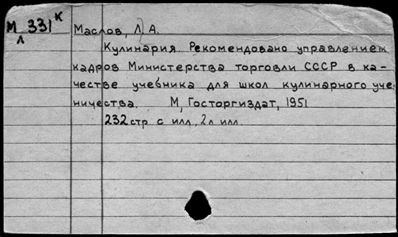 М 331 К
Л
Маслов, Л. А.
Кулинария. Рекомендовано управлением
кадров Министерства торговли СССР в ка-
честве учебника для школ кулинарного уче
ничества. М, Госторгиздат, 1951
232 стр с илл, 2 л илл.